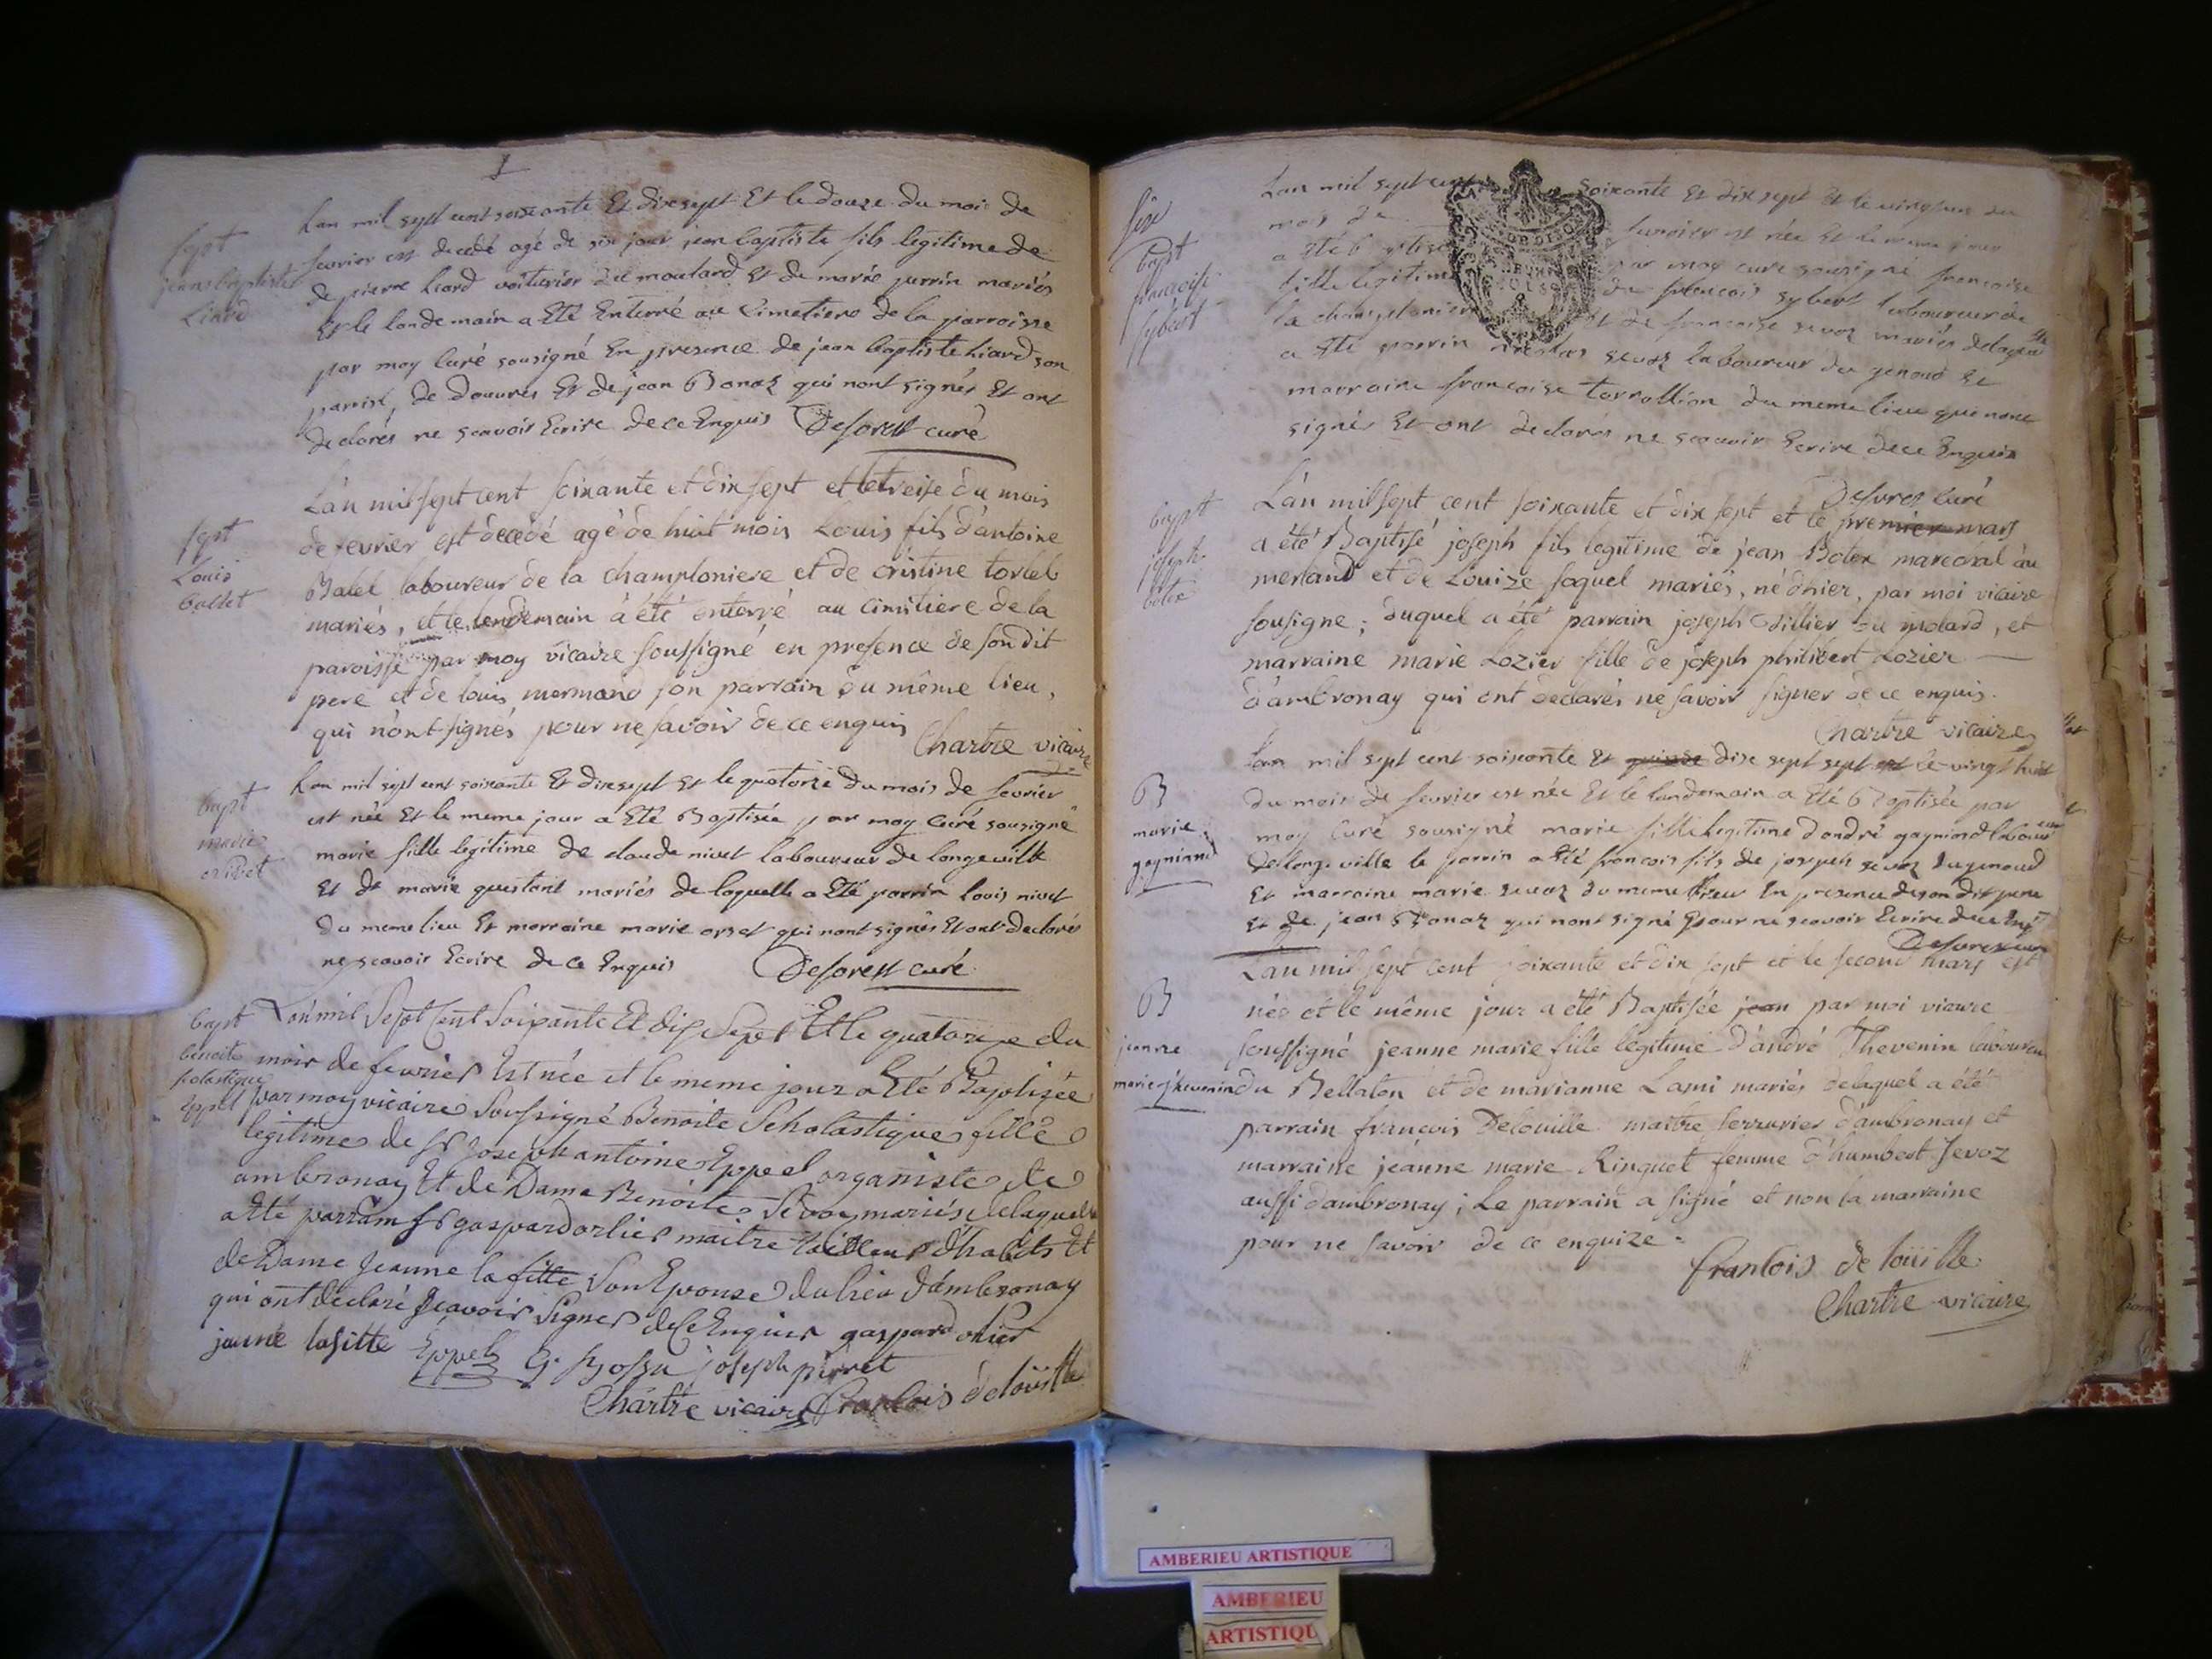 sept
jean baptiste
Liard
Lan mil sept cent soixante Et dix sept Et le douze du moi de
fevrier est decedé agé de six jour jean baptiste fils legitime de
de pierre Liard voiturier du moulard Et de marie perrin mariés
Et le landemain a Eté Enterré au Cimetiere de la parroisse
par moy Curé sousigné En presence de jean baptiste Liard son
parrin, de douvres Et de jean Bonaz qui nont signés Et ont
declarés ne scavoir Ecrire de ce Enquis Deforest curé
sept
Louis
ballet
L'an mil sept cent soixante et dix sept et le treise du mois
de fevrier est decedé agé de huit mois Louis fils d'antoine
laboureur de la championiere et de cristine
mariés, et le lendemain à été enterré au cimitiere de la
paroisse par moy vicaire soussigné en presence de son dit
pere et de louis mermand son parrain du même lieu,
qui n'ont signés pour ne savoir de ce enquis
Chartre vicaire
bapt
marie
nivet
Lan mil sept cent soixante Et dix sept Et le quatorze du mois de fevrier
est née Et le meme jour a Eté Baptisée par moy Curé sousigné
marie fille legitime de claude nivet laboureur de longeville
Et de marie questant mariés de laquelle a Eté parrin louis nivet
du meme lieu Et marraine marie orset qui nont signés Et ont declarés
ne scavoir Ecrire de ce Enquis Deforest curé
bapt
benoite
scolastique
Eppel
L'an mil Sept Cent Soixante Et dix Sept Et le quatorze du
mois de fevrier Est née et le meme jour a Eté Baptisée
par moy vicaire Soussigné Benoite Scholastique fille
legitime de sr joseph antoine Eppel organiste de
ambronay Et de Dame Benoite Sevoz mariés de laquelle
a été parrain sr gaspard orlier maitre tailleur d'habits Et
de Dame Jeanne lafitte Son Epouse du lieu d'ambronay
qui ont declaré scavoir Signer de ce Enquis gaspard orlier
jeanne lafitte Eppel G. joseph pirret
Chartre vicaire francois delouille
bapt
francoise
sybert
Lan mil sept cent soixante Et dix sept Et le vingt un du
mois de fevrier est née Et le meme jour
a Eté baptisée par moy curé sousigné francoise
fille legitime de francois sybert laboureur de
la championiere Et de francoise sevoz mariés delaquelle
a Eté parrin nicolas sevoz laboureur du genoud Et
marraine francoise torrollion du meme lieu qui nont
signés Et ont declarés ne scavoir Ecrire de ce Enquis
Deforest curé
bapt
joseph
botex
L'an mil sept cent soixante et dix sept et le premier mars
a été Baptisé joseph fils legitime de jean Botex marechal au
merland et de Louize foquet mariés, né d'hier, par moi vicaire
sousigne; duquel a été parrain joseph Tillier du molard, et
marraine marie Lozier fille de joseph philibert Lozier
d'ambronay qui ont declarés ne savoir signer de ce enquis.
Chartre vicaire
B
marie
gagniand
Lan mil sept cent soixante Et quinze dix sept sept est le vingt huit
du mois de fevrier est née Et le landemain a Eté Baptisée par
moy Curé sousigné marie fille legitime d'andré gagniand laboureur
de longeville le parrin a Eté francois fils de joseph sevoz du genoud
Et marraine marie sevoz du meme lieu En presence de son dit pere
Et de jean Bonaz qui nont signé pour ne scavoir Ecrire de ce Enq
Deforest curé
B
jeanne
marie thevenin
L'an mil sept cent soixante et dix sept et le second mars est
née et le même jour a été Baptisée jean par moi vicaire
soussigné jeanne marie fille legitime d'andré Thevenin laboureur
du Bellaton et de marianne Lami mariés delaquel a été
parrain francois Delouille maitre serrurier d'ambronay et
marraine jeanne marie Ringuet femme d'humbert Sevoz
aussi d'ambronay; Le parrain a signé et non la marraine
pour ne savoir de ce enquize
francois de louille
Chartre vicaire
AMBERIEU ARTISTIQUE
AMBERIEU
ARTISTIQU